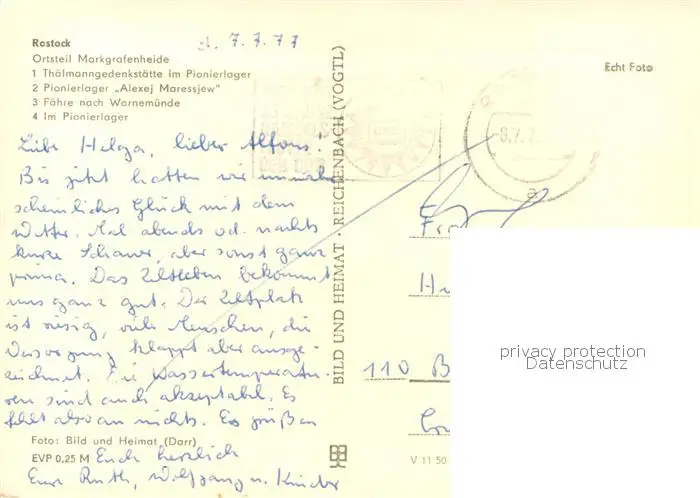 Rostock
Ortsteil Markgrafenheide
1 Thälmanngedenkstätte im Pionierlager
2 Pionierlager „Alexej Maressjew"
3 Fähre nach Warnemünde
4 Im Pionierlager
7.7.77
Echt Foto
Liebe Helga, lieber Alfons!
Bis jetzt hatten wir unwahr-
scheinliches Glück mit dem
Wetter. Mal abends od. nachts
kurze Schauer, aber sonst ganz
prima. Das Zeltleben bekommt
uns ganz gut. Der Zeltplatz
ist riesig, viele Menschen, die
Versorgung klappt aber ausge-
zeichnet. Die Wassertemperatu-
ren sind auch akzeptabel. Es
fehlt also an nichts. Es grüßen
Euch herzlich
Eure Ruth, Wolfgang u. Kinder
Foto: Bild und Heimat (Darr)
EVP 0,25 M
BILD UND HEIMAT · REICHENBACH (VOGTL)
8.7.7
110 B
V 11 50
privacy protection
Datenschutz